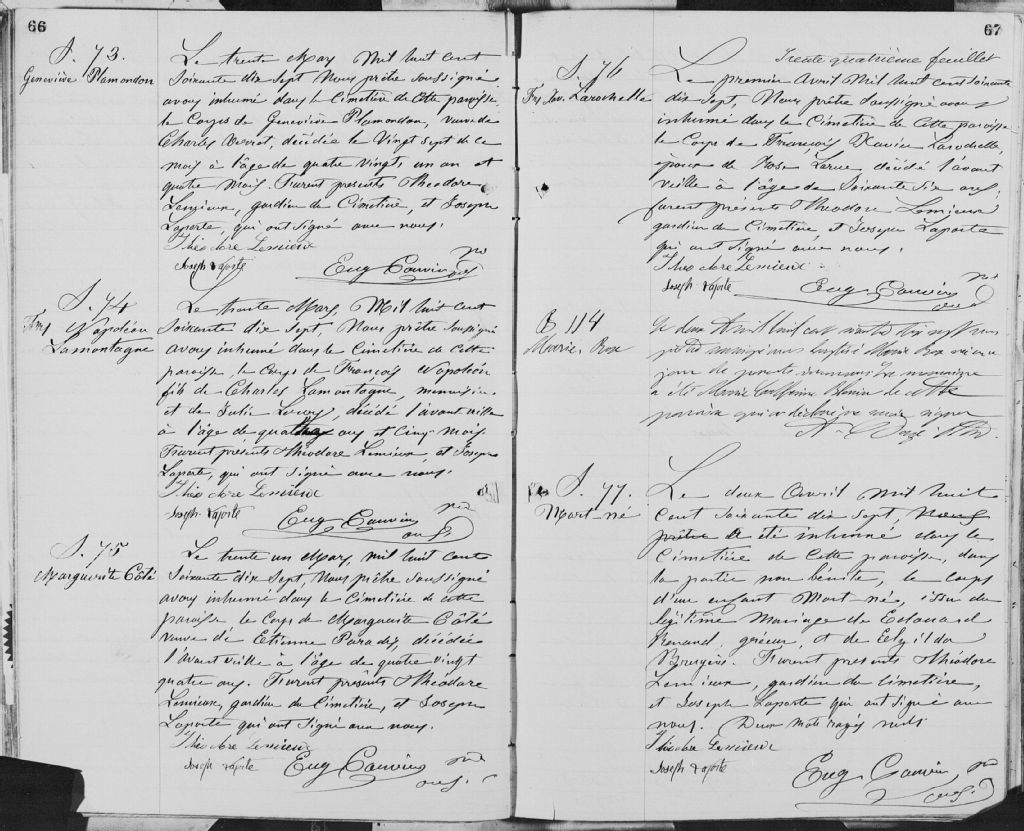 66
S. 73.
Geneviève Plamondon
Le trente Mars Mil huit cent
soixante dix sept Nous prêtre soussigné
avons inhumé dans le Cimetière de cette paroisse
le Corps de Geneviève Plamondon, veuve de
Charles Verret, décédée le Vingt sept de ce
mois à l'âge de quatre vingts un an et
quatre mois. Furent présents Théodore
Lemieux, gardien du Cimetière, et Joseph
Laporte, qui ont signé avec nous.
Théodore Lemieux
Joseph Laporte
Eug Gauvin ptre
S. 74
Frs Napoléon
Lamontagne
Le trente Mars, Mil huit cent
soixante dix sept, Nous prêtre soussigné
avons inhumé dans le Cimetière de cette
paroisse, le Corps de François Napoléon
fils de Charles Lamontagne, menuisier
et de Julie, décédé l'avant veille
à l'âge de ans et cinq mois
Furent présents Théodore Lemieux, et Joseph
Laporte, qui ont signé avec nous.
Théodore Lemieux
Joseph Laporte
Eug Gauvin ptre
S. 75
Marguerite Côté
Le trente un Mars, mil huit cent
soixante dix sept, Nous prêtre soussigné
avons inhumé dans le Cimetière de cette
paroisse, le Corps de Marguerite Côté
veuve de Etienne Paradis, décédée
l'avant veille à l'âge de quatre vingt
quatre ans. Furent présents Théodore
Lemieux, gardien du Cimetière, et Joseph
Laporte qui ont signé avec nous.
Théodore Lemieux
Joseph Laporte
Eug Gauvin ptre
67
Trente quatrième feuillet
S. 76
Frs Xav. Larochelle
Le premier Avril Mil huit cent soixante
dix sept, Nous prêtre soussigné avons
inhumé dans le Cimetière de cette paroisse
le Corps de François Xavier Larochelle,
époux de Rose Larue, décédé l'avant
veille à l'âge de soixante six ans,
furent présents Théodore Lemieux
gardien du Cimetière, et Joseph Laporte
qui ont signé avec nous.
Théodore Lemieux
Joseph Laporte
Eug Gauvin ptre
B 114
Marie Rose
Le deux Avril huit cent soixante dix sept nous
prêtre soussigné avons baptisé Marie Rose née
jour de parents inconnus La marraine
a été Marie de cette
paroisse qui a déclaré ne savoir signer
S. 77.
Mort-né
Le deux Avril Mil huit
cent soixante dix sept, Nous
prêtre a été inhumé dans le
Cimetière de cette paroisse, dans
la partie non bénite, le corps
d'un enfant Mort-né, issu du
légitime Mariage de Edouard
Renaud, et de
Bruyère. Furent présents Théodore
Lemieux, gardien du cimetière,
et Joseph Laporte qui ont signé avec
nous. Deux mots rayés nuls
Théodore Lemieux
Joseph Laporte
Eug Gauvin ptre